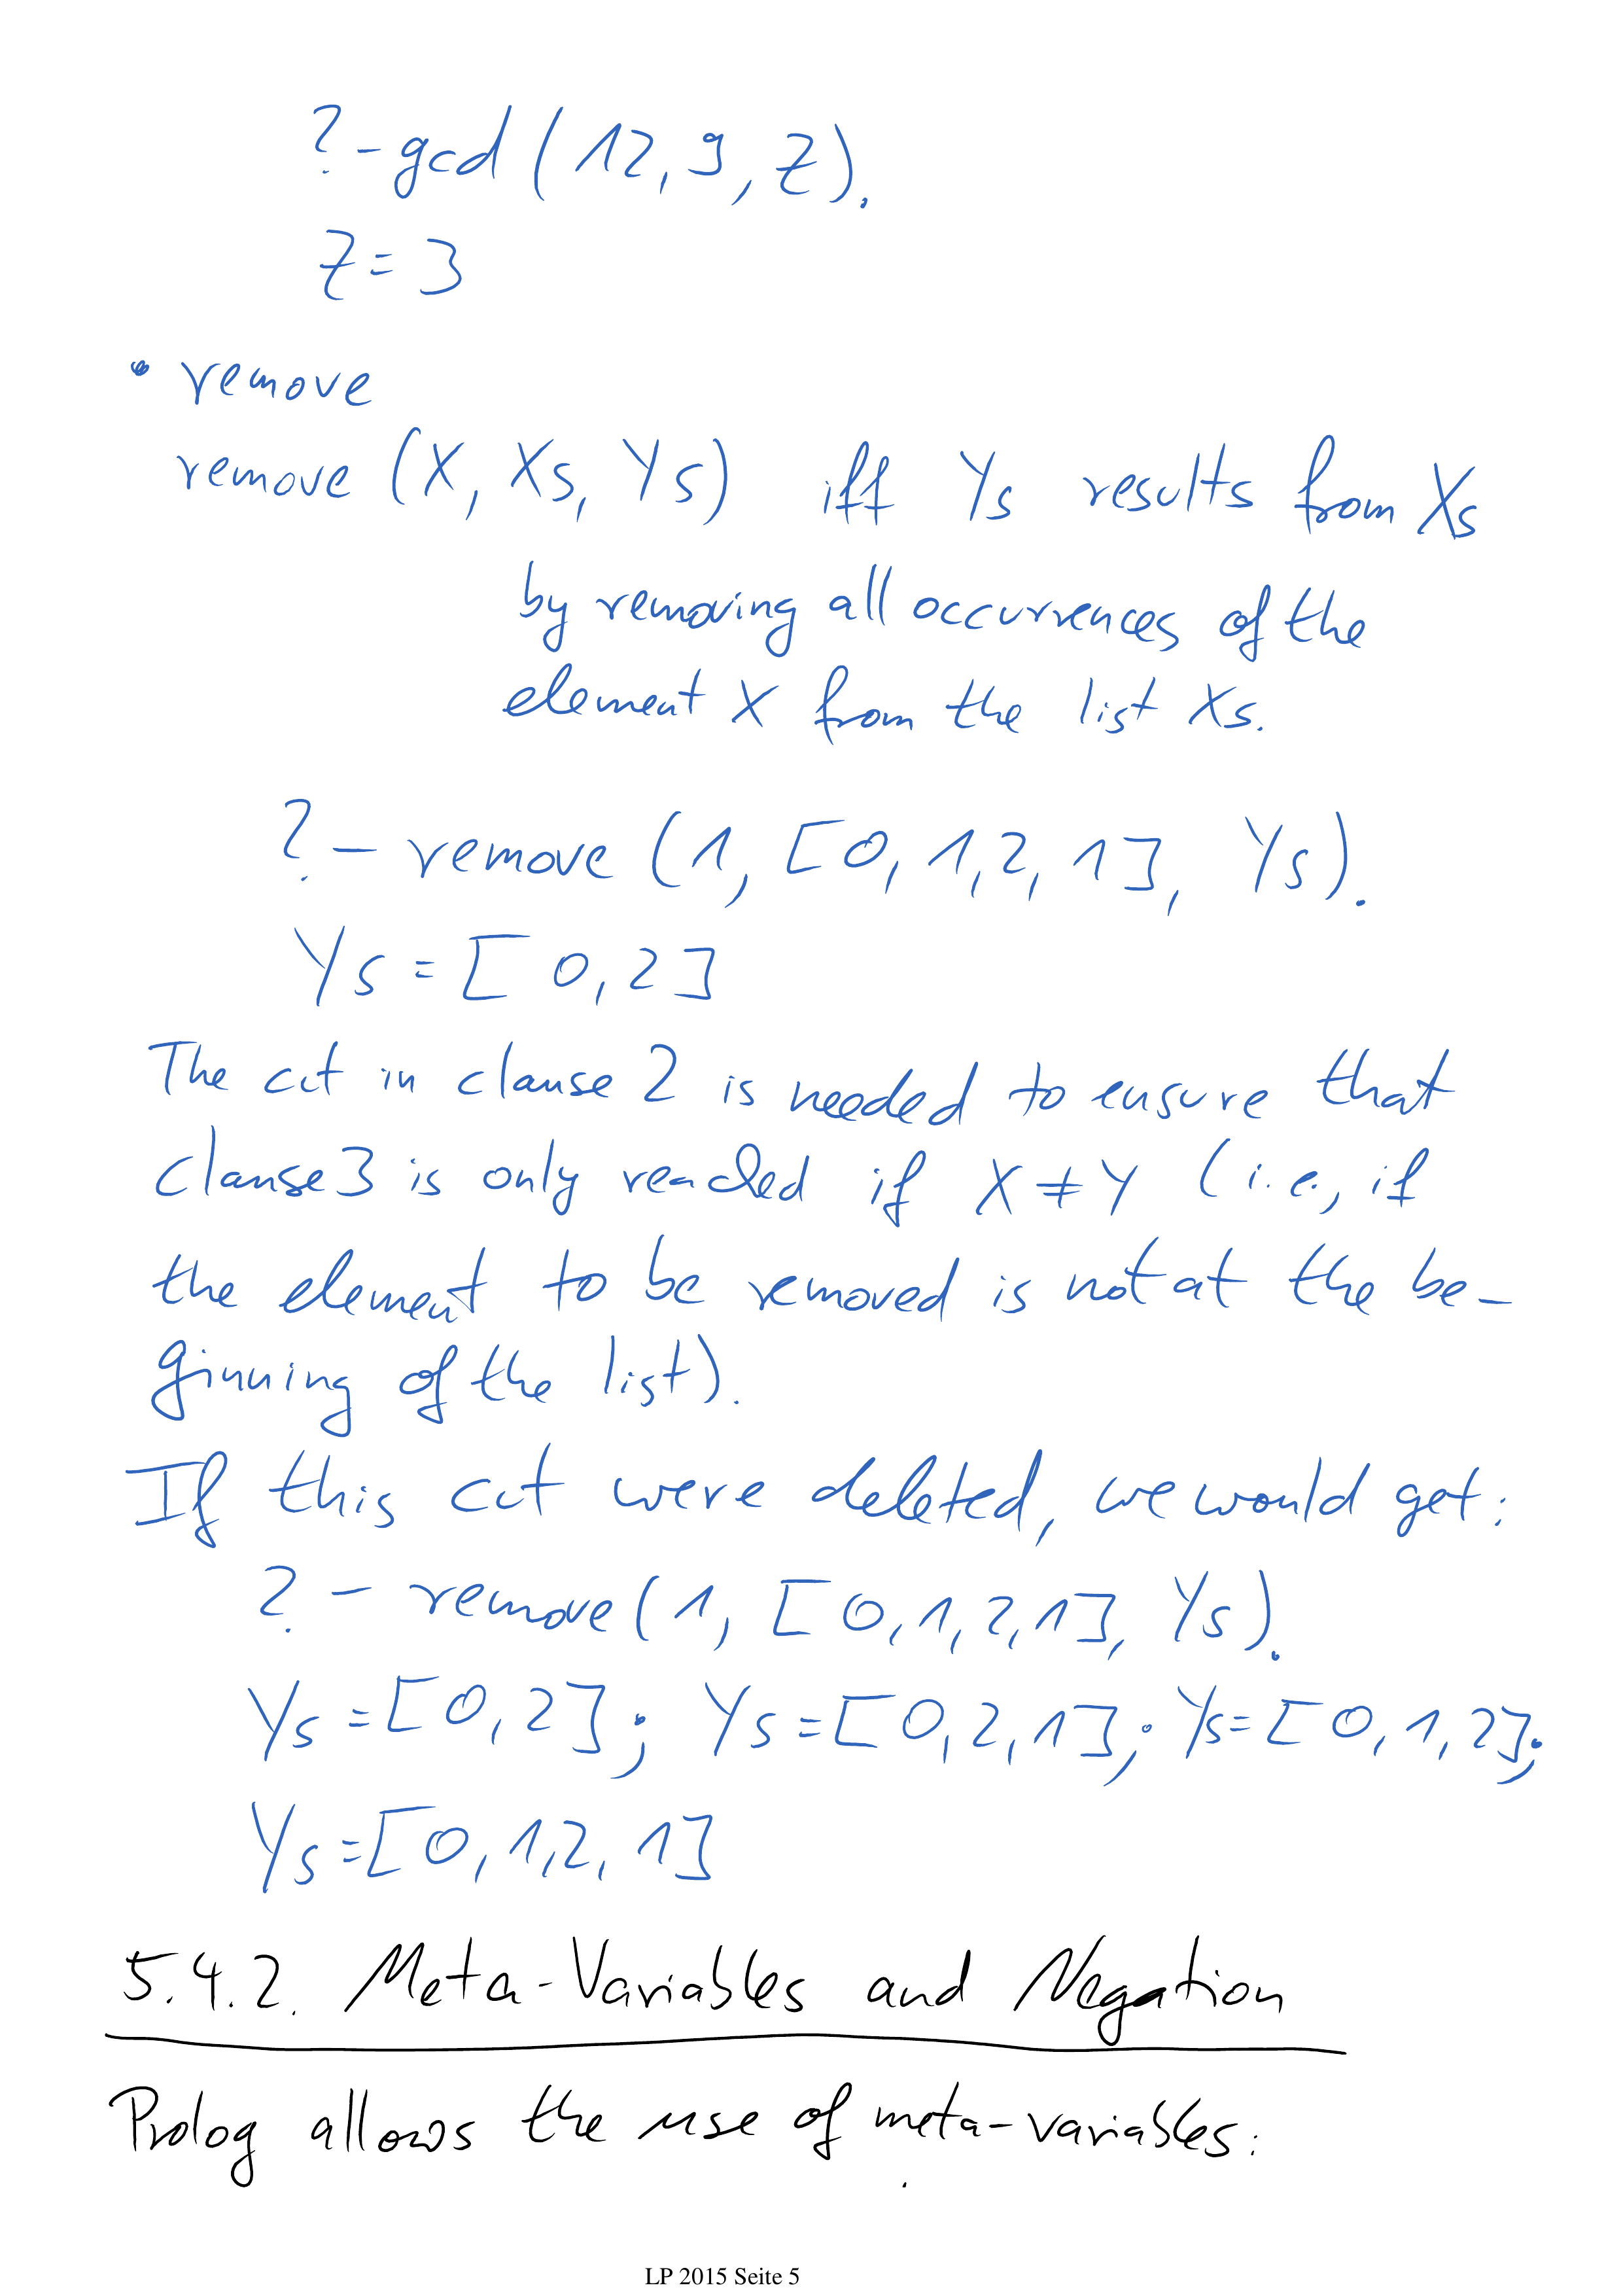 ?- gcd (12, 9, Z).
Z = 3
• remove
remove (X, Xs, Ys) iff Ys results from Xs
by removing all occurrences of the
element X from the list Xs.
?- remove (1, [0, 1, 2, 1], Ys).
Ys = [0, 2]
The cut in clause 2 is needed to ensure that
clause 3 is only reached if X ≠ Y (i.e., if
the element to be removed is not at the be-
ginning of the list).
If this cut were deleted, we would get:
?- remove (1, [0, 1, 2, 1], Ys).
Ys = [0, 2]; Ys = [0, 2, 1]; Ys = [0, 1, 2];
Ys = [0, 1, 2, 1]
5.4.2. Meta-Variables and Negation
Prolog allows the use of meta-variables:
LP 2015 Seite 5